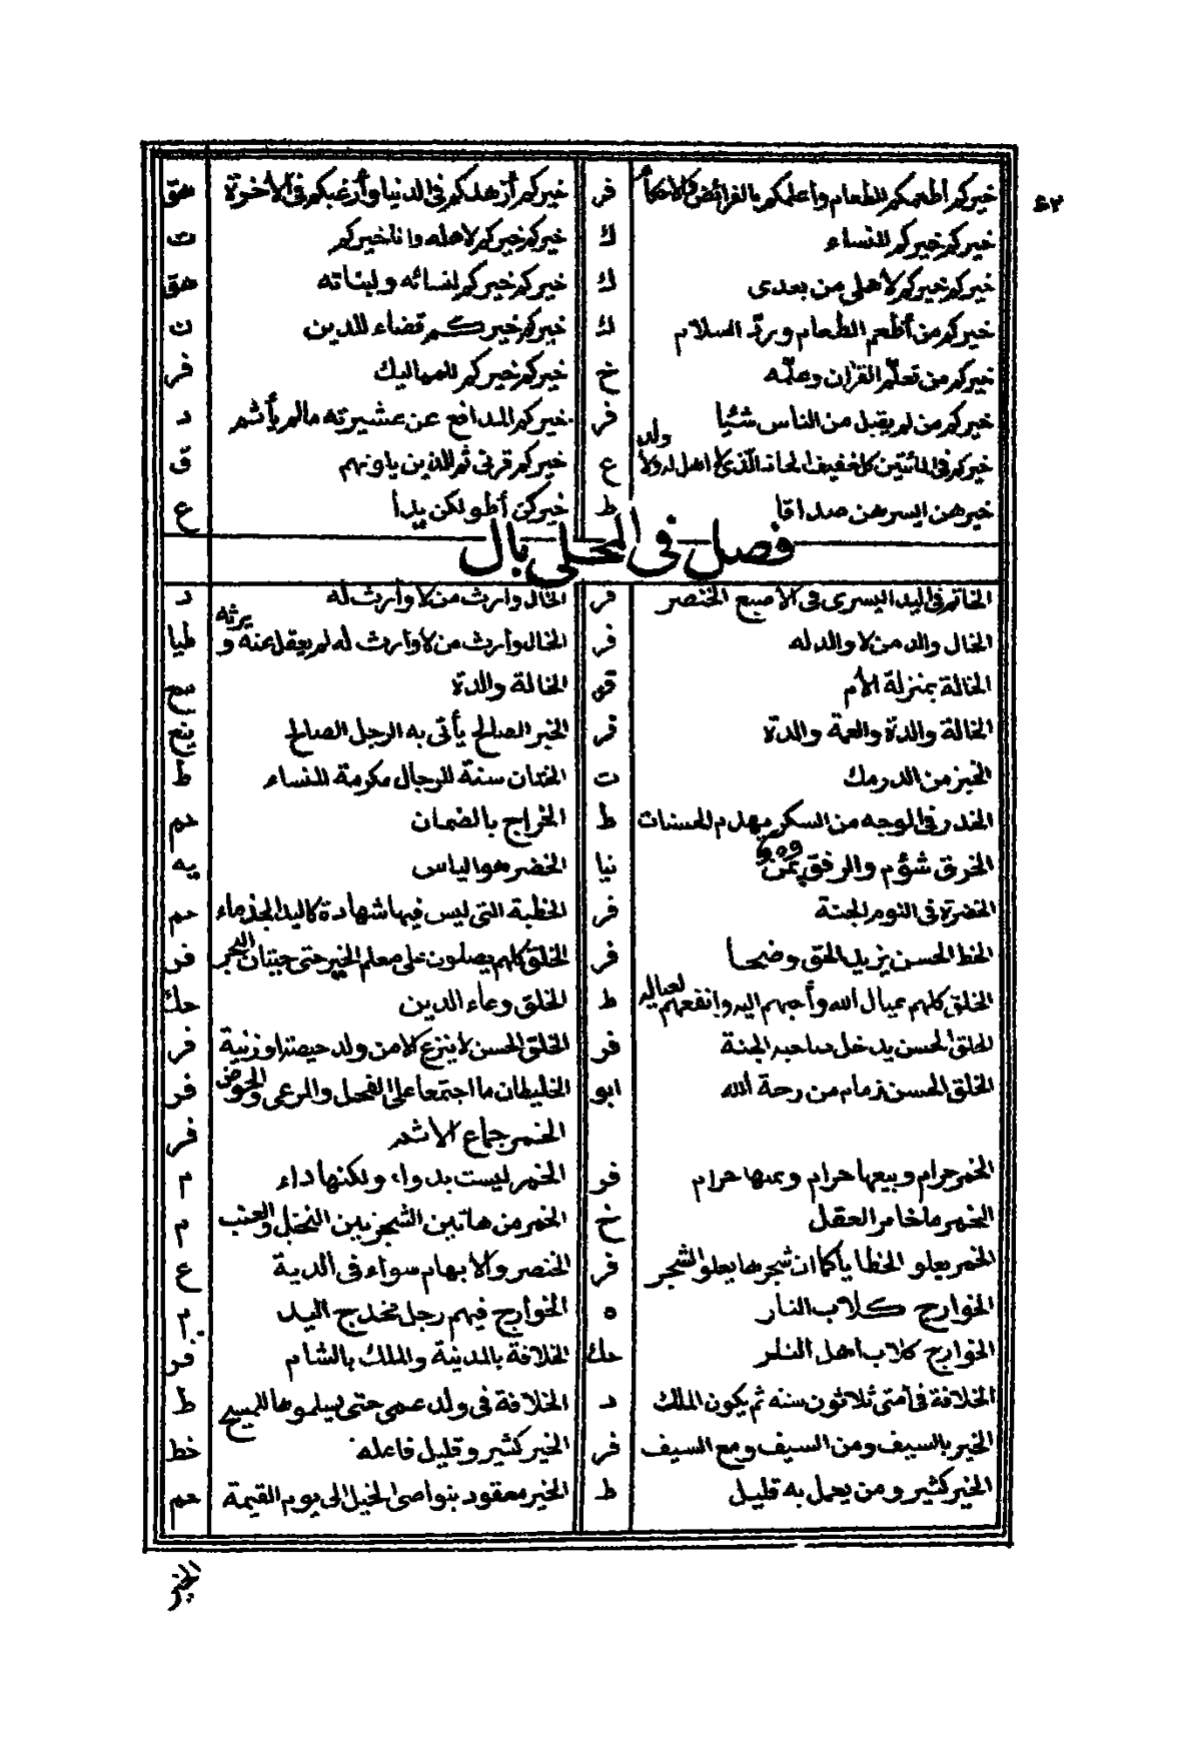 ٤٢
خيركم أطعمكم للطعام وأعلمكم بالفرائض فر خيركم أزهدكم في الدنيا وأرغبكم في الأخرة هق
خيركم خيركم للنساء ك خيركم خيركم لاهله وانا خيركم ت
خيركم خيركم لأهلى من بعدى ك خيركم خيركم لنسائه ولبناته هق
خيركم من أطعم الطعام وبردّ السلام ك خيركم خيركم قضاء للدين ن
خيركم من تعلّم القرآن وعلّمه خ خيركم خيركم للمماليك فر
خيركم من لم يقبل من الناس شئيا فر خيركم المدافع عن عشيرته مالم يأثم د
خيركم في المائتين كل خفيف الحاذ الّذى لا اهل له ولا ولد ع خيركم قرنى ثم الذين يلونهم ق
خيرهن ايسرهن صداقا ط خيركن أطولكن يدا ع
فصل في المحلى بال
الخاتم في اليد اليسرى في الأصبع الخنصر فر الخال وارث من لا وارث له د
الخال والد من لا والد له فر الخال وارث من لا وارث له لم يعقل عنه و يرثه طيا
الخالة بمنزلة الأم قد الخالة والدة سع
الخالة والدة والعمة والدة فر الخبر الصالح يأتى به الرجل الصالح
الخبز من الدرمك ت الختان سنة للرجال مكرمة للنساء ط
الخدر في الوجه من السكر يهدم الحسنات ط الخراج بالضمان حم
الخرق شؤم والرفق يمن نيا الخضر هو الياس يه
الخضرة في النوم الجنة فر الخطبة التى ليس فيها شهادة كاليد الجذماء حم
الخط الحسن يزيد الحق وضحا فر الخلق كلهم يصلون على معلم الخير حتى حيتان البحر فر
الخلق كلهم عيال الله وأحبهم اليه وانفعهم لعياله ط الخلق وعاء الدين حك
الخلق الحسن يدخل صاحبه الجنة فر الخلق الحسن لا ينزع الا من ولد حيضة او زنية فر
الخلق الحسن زمام من رحمة الله ابو الخليطان ما اجتمعا على الفحل والمرعى والحوض فر
الخمر جماع الاثم فر
الخمر حرام وبيعها حرام وثمنها حرام فر الخمر ليست بدواء ولكنها داء م
الخمر ما خامر العقل خ الخمر من هاتين الشجرتين النخل والعنب م
الخمر يعلو الخطايا كما ان شجرها يعلو الشجر فر الخنصر والابهام سواء في الدية ع
الخوارج كلاب النار ه الخوارج فيهم رجل مخدج اليد م
الخوارج كلاب اهل النار حك الخلافة بالمدينة والملك بالشام فر
الخلافة في أمتى ثلاثون سنة ثم يكون الملك د الخلافة في ولد عمى حتى يسلموها للمسيح ط
الخير بالسيف ومن السيف ومع السيف فر الخير كثير وقليل فاعله خط
الخير كثير ومن يعمل به قليل ط الخير معقود بنواصى الخيل الى يوم القيمة حم
الخير